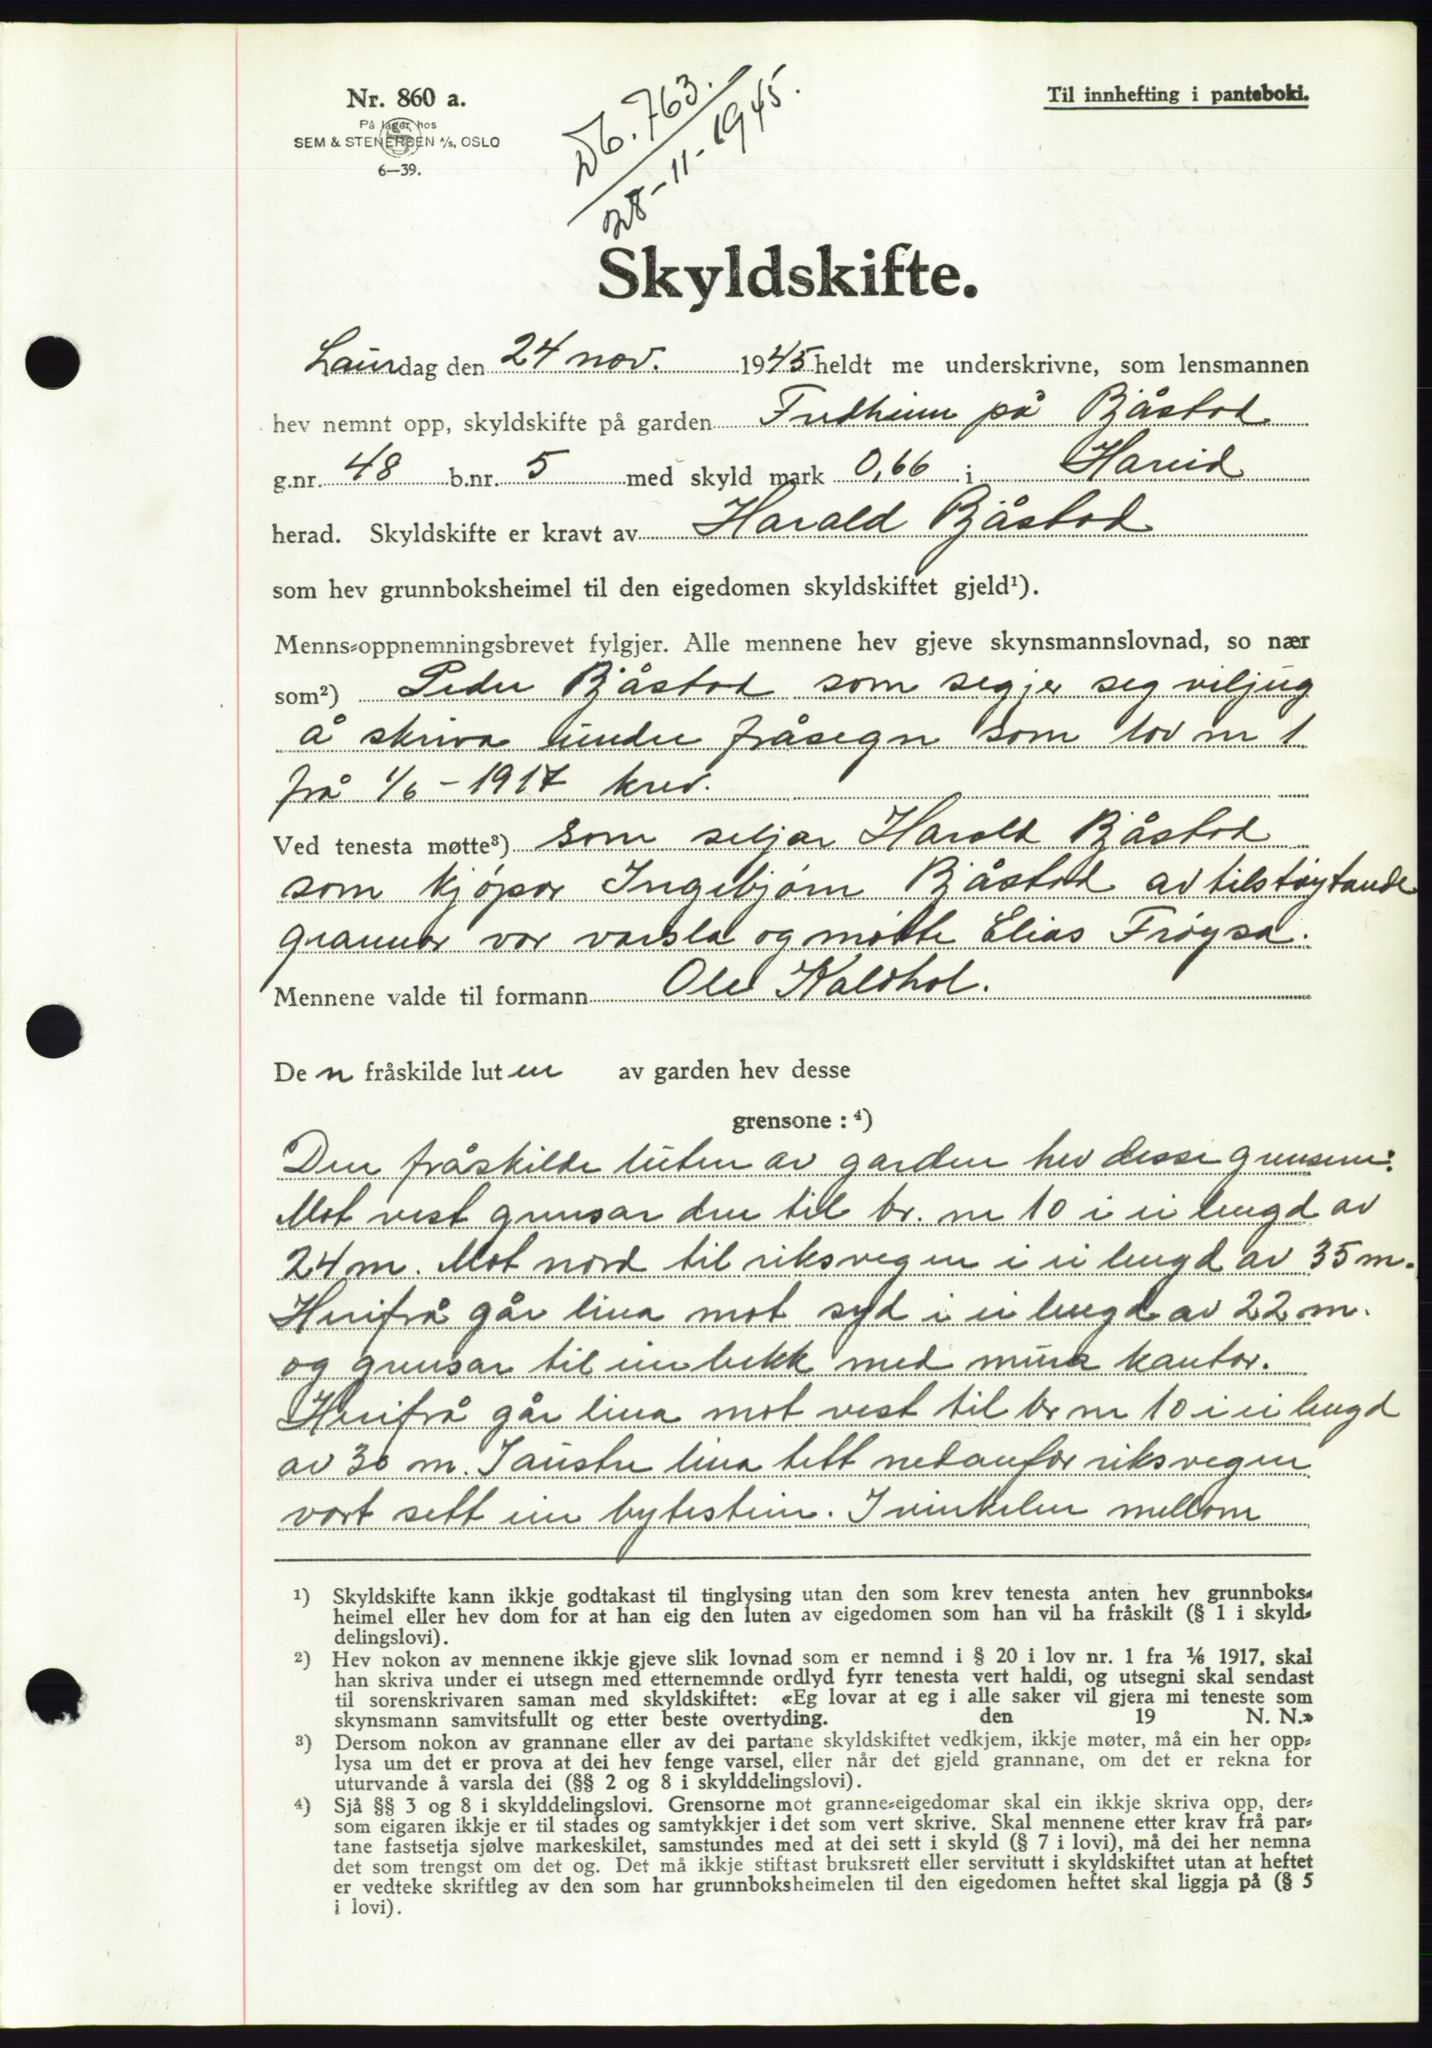 Nr. 860 a.
På lager hos
SEM & STENERSEN A/S, OSLO
6—39.
Db. 763.
28-11-1945.
Til innhefting i panteboki.
Skyldskifte.
Laurdag den 24 nov. 1945 heldt me underskrivne, som lensmannen
hev nemnt opp, skyldskifte på garden Fredheim på Bjåstad
g.nr. 48 b.nr. 5 med skyld mark 0,66 i Hareid
herad. Skyldskifte er kravt av Harald Bjåstad
som hev grunnboksheimel til den eigedomen skyldskiftet gjeld¹).
Menns=oppnemningsbrevet fylgjer. Alle mennene hev gjeve skynsmannslovnad, so nær
som²) Peder Bjåstad som segjer seg viljug
å skriva under fråsegn som lov nr 1
frå 1/6 - 1917 krev.
Ved tenesta møtte³) som seljar Harald Bjåstad
som kjøpar Ingebjørn Bjåstad av tilstøytande
grannar var varsla og møtte Elias Frøysa.
Mennene valde til formann Ole Kaldhol.
De n fråskilde lut en av garden hev desse
grensone : ⁴)
Den fråskilde luten av garden hev desse grensene:
Mot vest grensar den til br. nr 10 i ei lengd av
24 m. Mot nord til riksvegen i ei lengd av 35 m.
Herifrå går lina mot syd i ei lengd av 22 m.
og grensar til ein bekk med mura kantar.
Herifrå går lina mot vest til br nr 10 i ei lengd
av 30 m. I austre lina tett nedanfor riksvegen
vart sett ein bytestein. I vinkelen mellom
¹) Skyldskifte kann ikkje godtakast til tinglysing utan den som krev tenesta anten hev grunnboks=
heimel eller hev dom for at han eig den luten av eigedomen som han vil ha fråskilt (§ 1 i skyld=
delingslovi).
²) Hev nokon av mennene ikkje gjeve slik lovnad som er nemnd i § 20 i lov nr. 1 fra 1/6 1917, skal
han skriva under ei utsegn med etternemnde ordlyd fyrr tenesta vert haldi, og utsegni skal sendast
til sorenskrivaren saman med skyldskiftet: «Eg lovar at eg i alle saker vil gjera mi teneste som
skynsmann samvitsfullt og etter beste overtyding. den 19 N. N.»
³) Dersom nokon av grannane eller av dei partane skyldskiftet vedkjem, ikkje møter, må ein her opp=
lysa um det er prova at dei hev fenge varsel, eller når det gjeld grannane, om det er rekna for
uturvande å varsla dei (§§ 2 og 8 i skylddelingslovi).
⁴) Sjå §§ 3 og 8 i skylddelingslovi. Grensorne mot granne=eigedomar skal ein ikkje skriva opp, der=
som eigaren ikkje er til stades og samtykkjer i det som vert skrive. Skal mennene etter krav frå par=
tane fastsetja sjølve markeskilet, samstundes med at dei sett i skyld (§ 7 i lovi), må dei her nemna
det som trengst om det og. Det må ikkje stiftast bruksrett eller servitutt i skyldskiftet utan at heftet
er vedteke skriftleg av den som har grunnboksheimelen til den eigedomen heftet skal liggja på (§ 5
i lovi).